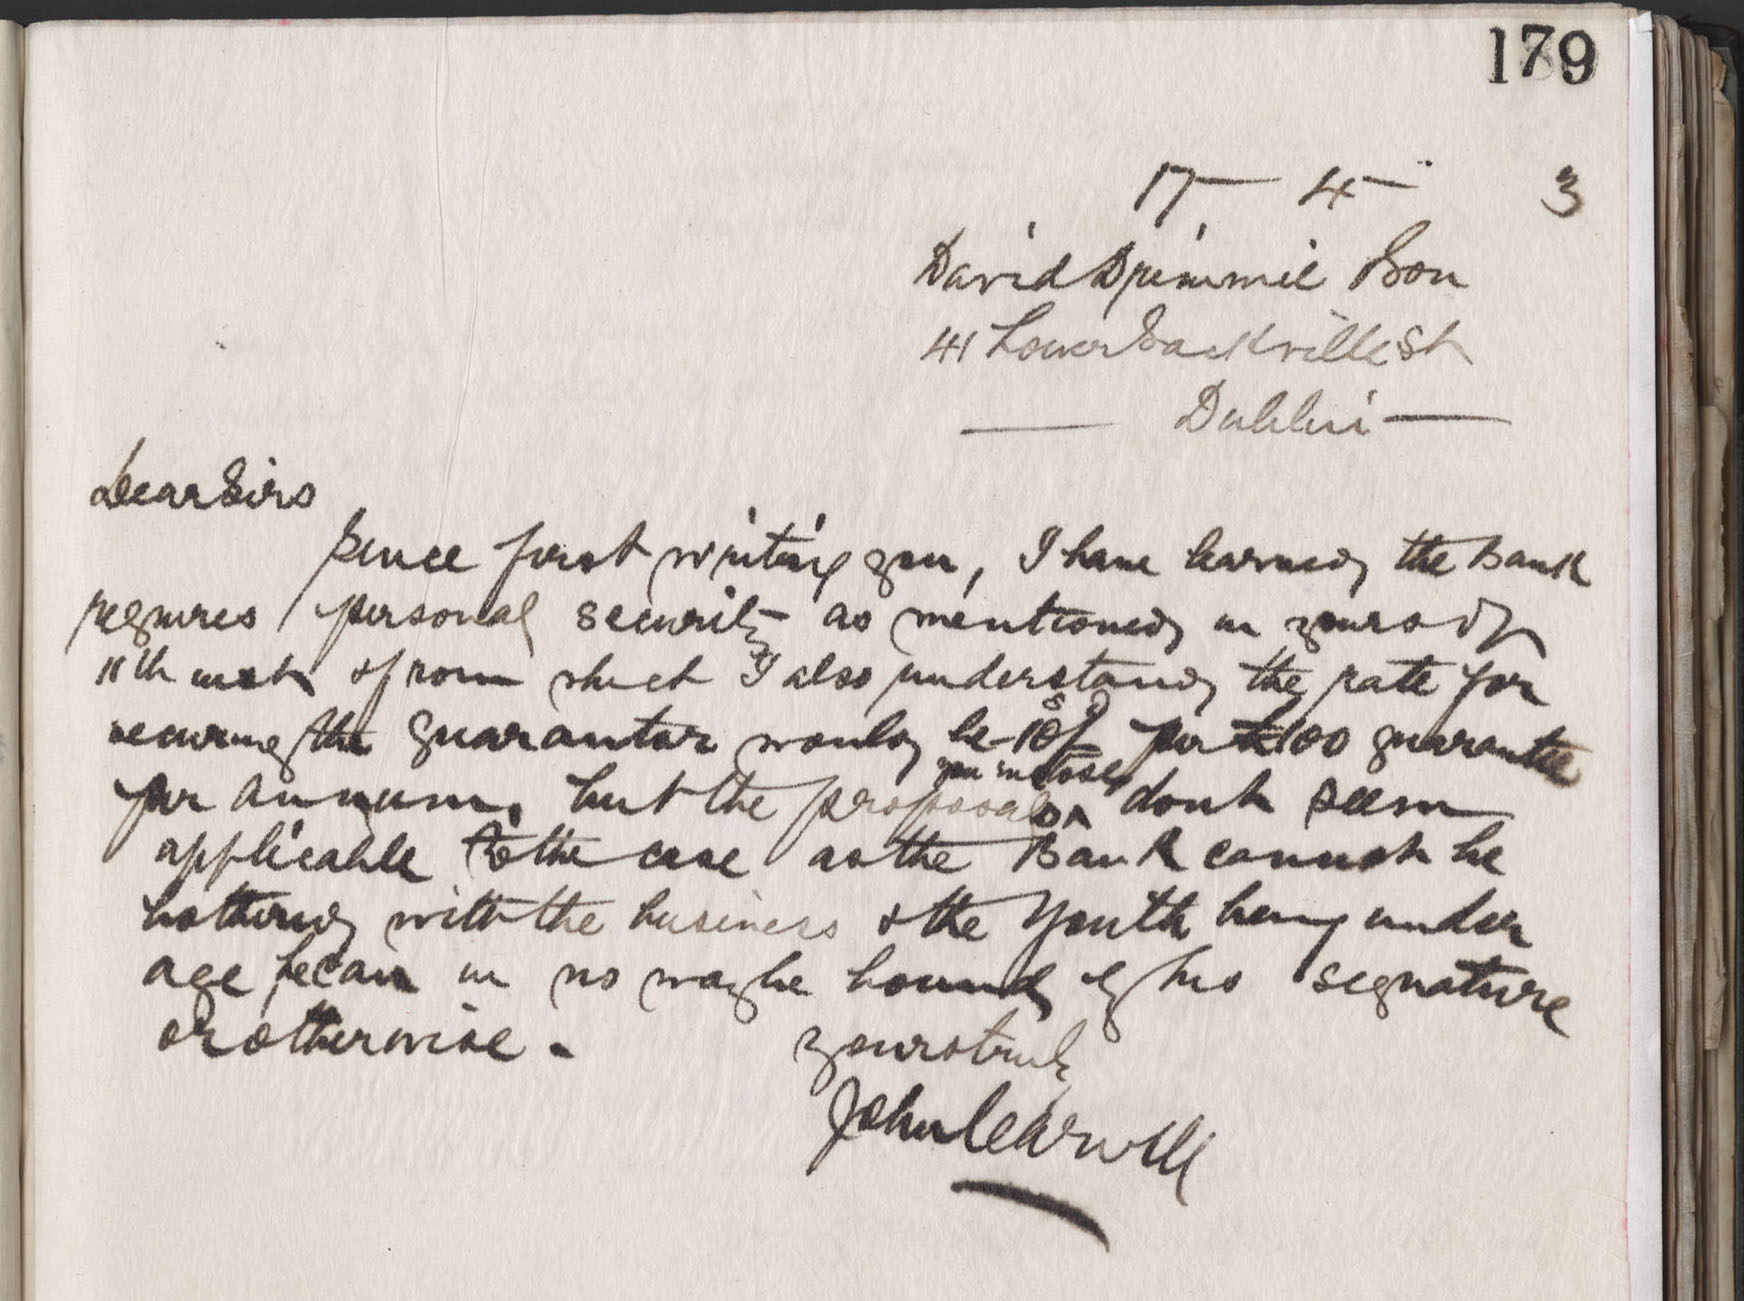 179
17 — 4 — 3
David Drimmie Son
41 Lower Sackville St
— Dublin —
Dear Sirs
Since first writing you, I have learned the Bank
requires personal security as mentioned in yours of
11th inst & from which I also understand the rate for
securing the guarantor would be 10s/ per £100 guarantee
per annum, but the proposals you enclosed dont seem
applicable to the case as the Bank cannot be
bothered with the business & the Youth being under
age he can in no way be bound by his signature
or otherwise.
yours truly
John Carvill